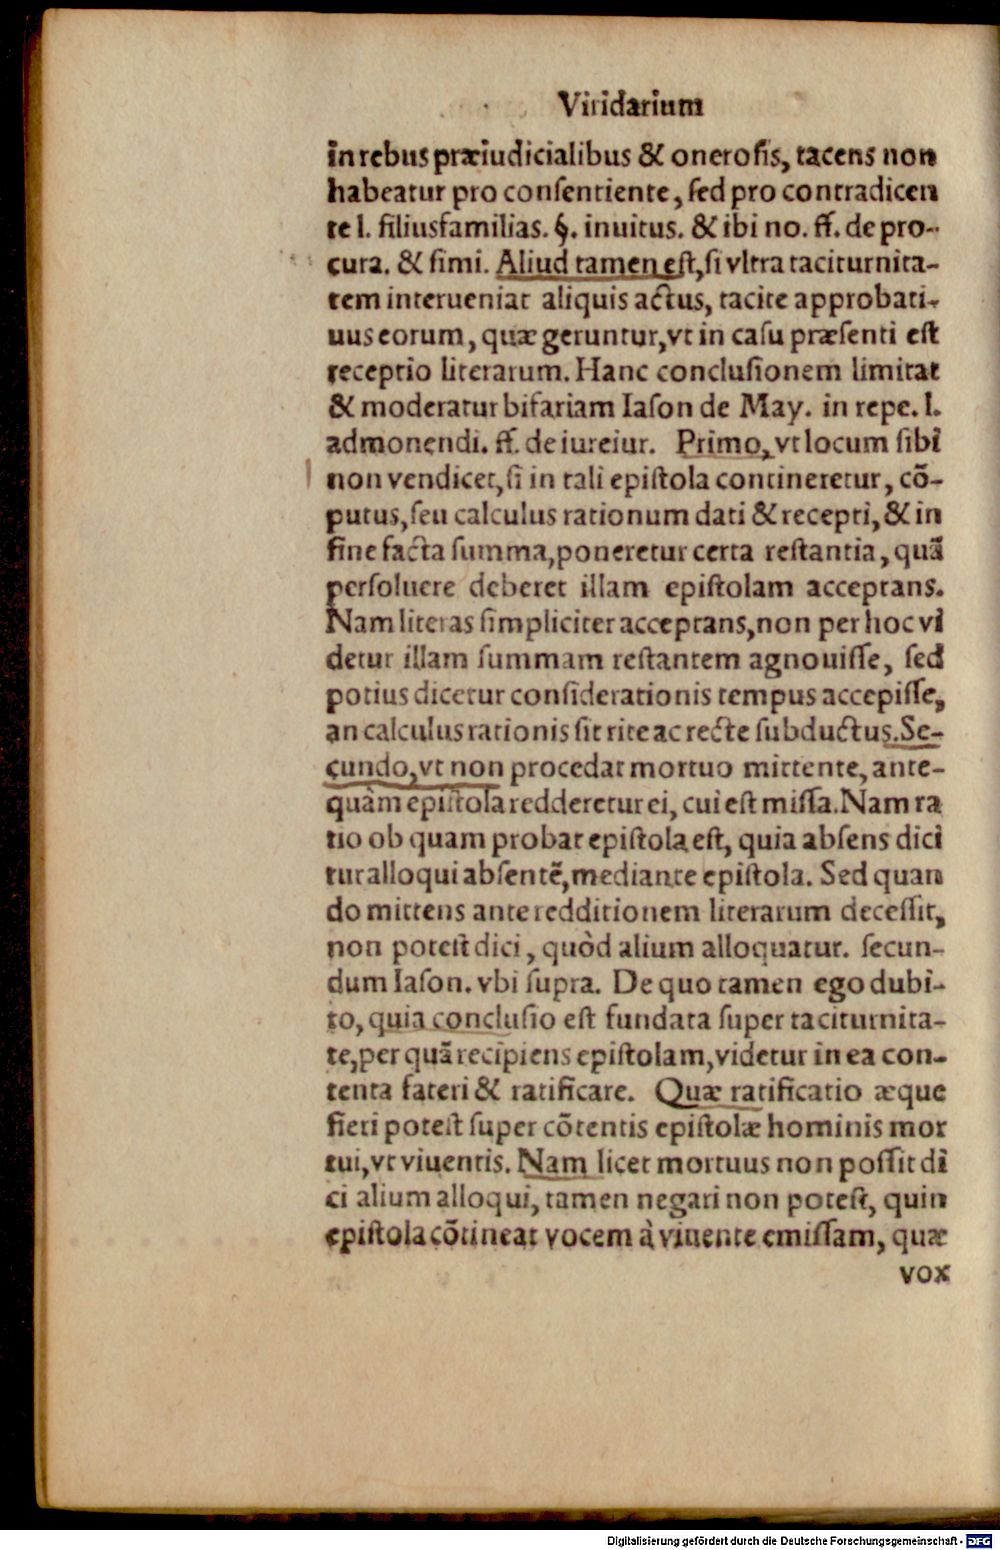 Viridarium
in rebus præiudicialibus & onerosis, tacens non
habeatur pro consentiente, sed pro contradicen
te l. filiusfamilias. §. inuitus. & ibi no. ff. de pro-
cura. & simi. Aliud tamen est, si vltra taciturnita-
tem interueniat aliquis actus, tacite approbati-
uus eorum, quæ geruntur, vt in casu præsenti est
receptio literarum. Hanc conclusionem limitat
& moderatur bifariam Iason de May. in repe. l.
admonendi. ff. de iureiur. Primo, vt locum sibi
non vendicet, si in tali epistola contineretur, cō-
putus, seu calculus rationum dati & recepti, & in
fine facta summa, poneretur certa restantia, quā
persoluere deberet illam epistolam acceptans.
Nam literas simpliciter acceptans, non per hoc vi
detur illam summam restantem agnouisse, sed
potius dicetur considerationis tempus accepisse,
an calculus rationis sit rite ac recte subductus. Se-
cundo, vt non procedat mortuo mittente, ante-
quàm epistola redderetur ei, cui est missa. Nam ra
tio ob quam probat epistola est, quia absens dici
tur alloqui absentē, mediante epistola. Sed quan
do mittens ante redditionem literarum decessit,
non potest dici, quòd alium alloquatur. secun-
dum Iason. vbi supra. De quo tamen ego dubi-
to, quia conclusio est fundata super taciturnita-
te, per quā recipiens epistolam, videtur in ea con-
tenta fateri & ratificare. Quæ ratificatio æque
fieri potest super cōtentis epistolæ hominis mor
tui, vt viuentis. Nam licet mortuus non possit di
ci alium alloqui, tamen negari non potest, quin
epistola cōtineat vocem à viuente emissam, quæ
vox
Digitalisierung gefördert durch die Deutsche Forschungsgemeinschaft - DFG